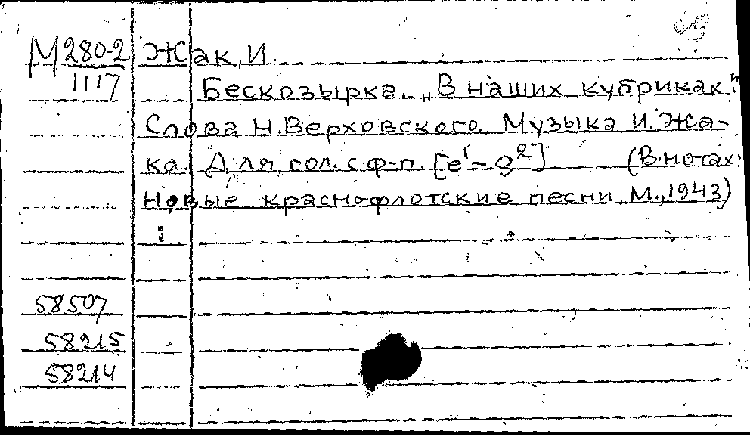 М280-2 Жак, И.
1117 Бескозырка. „В наших кубриках..."
Слова Н. Верховского. Музыка И. Жа-
ка. Для гол. с ф-п. [e¹-g²] (В нотах:
Новые краснофлотские песни. М., 1943)
58507
58215
58214